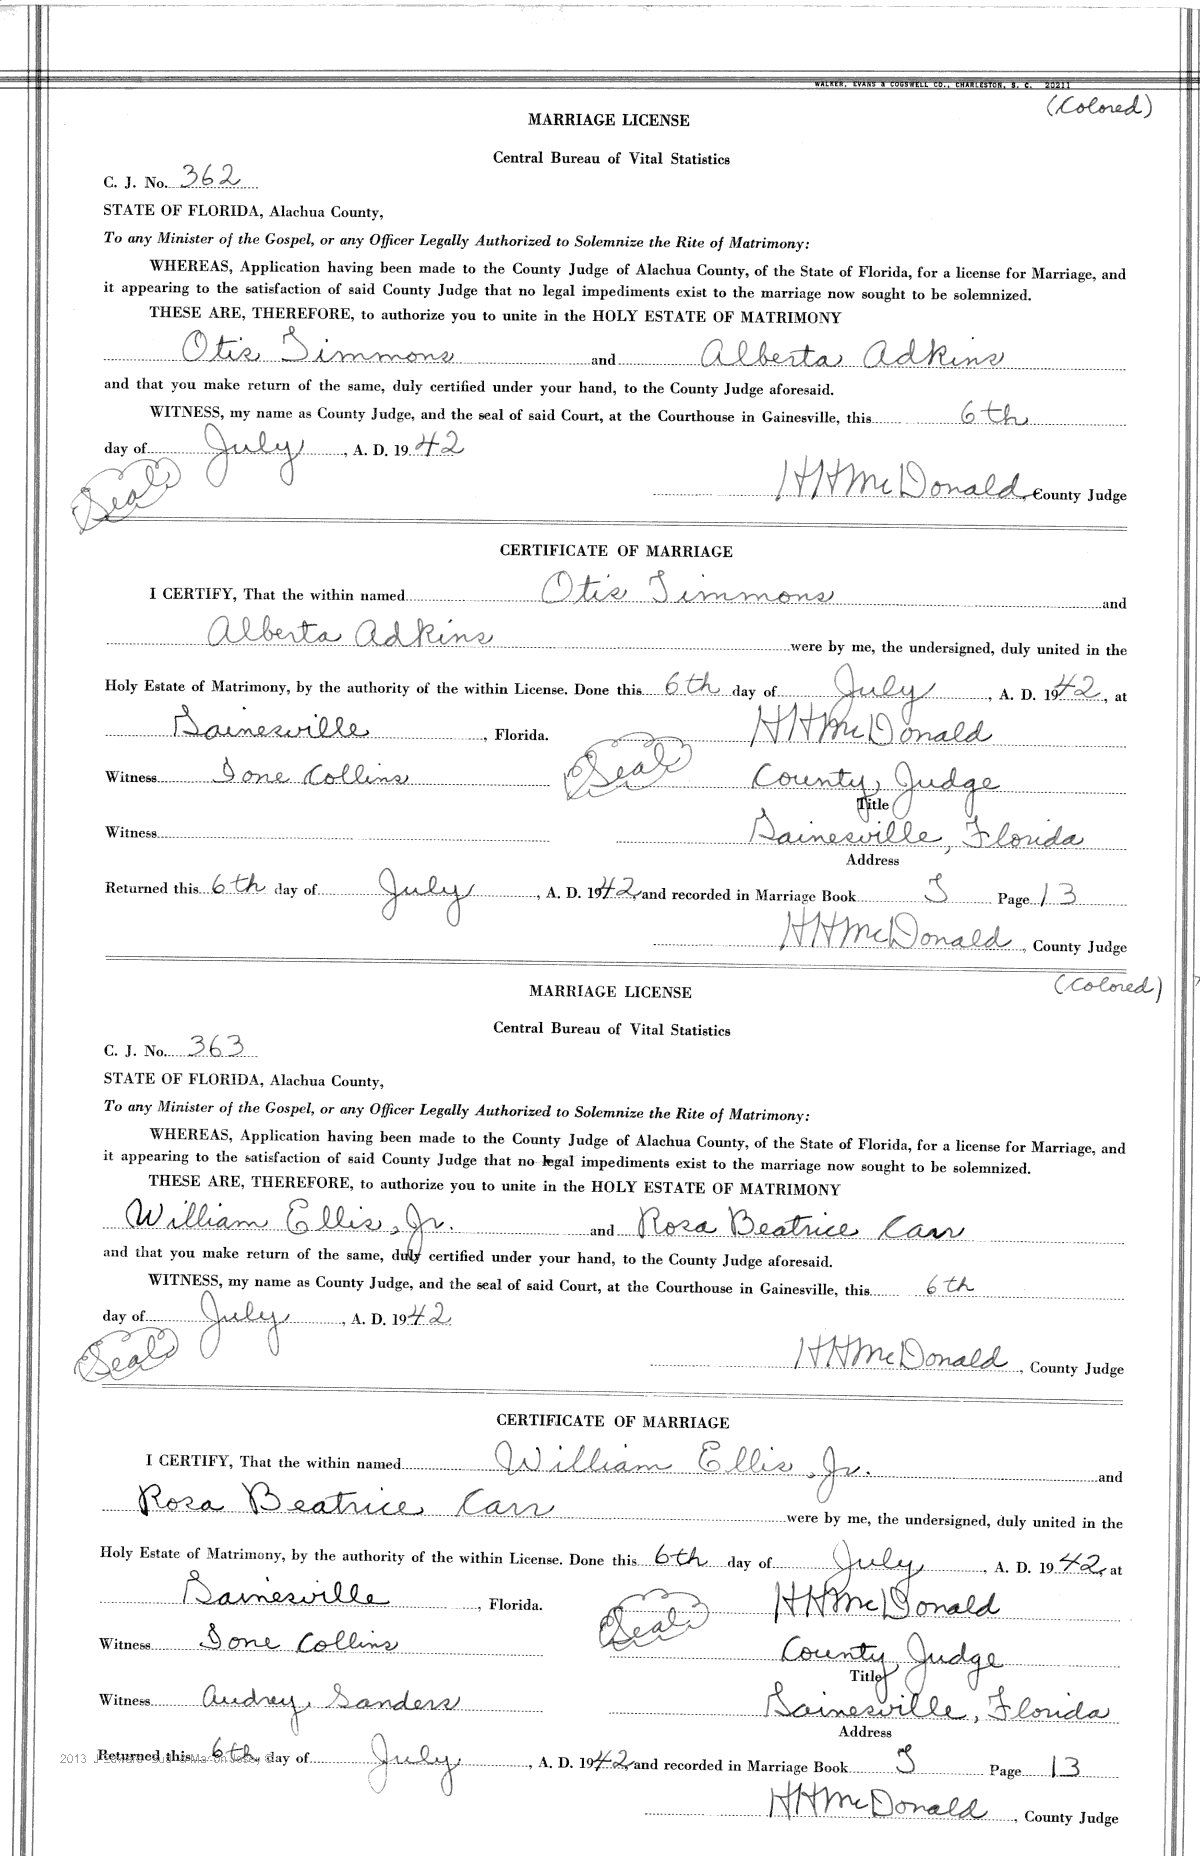 WALKER, EVANS & COGSWELL CO., CHARLESTON, S. C. 20211
(Colored)
MARRIAGE LICENSE
Central Bureau of Vital Statistics
C. J. No. 362
STATE OF FLORIDA, Alachua County,
To any Minister of the Gospel, or any Officer Legally Authorized to Solemnize the Rite of Matrimony:
WHEREAS, Application having been made to the County Judge of Alachua County, of the State of Florida, for a license for Marriage, and
it appearing to the satisfaction of said County Judge that no legal impediments exist to the marriage now sought to be solemnized.
THESE ARE, THEREFORE, to authorize you to unite in the HOLY ESTATE OF MATRIMONY
Otis Timmons and Alberta Adkins
and that you make return of the same, duly certified under your hand, to the County Judge aforesaid.
WITNESS, my name as County Judge, and the seal of said Court, at the Courthouse in Gainesville, this 6th
day of July, A. D. 1942
(Seal) HHMcDonald, County Judge
CERTIFICATE OF MARRIAGE
I CERTIFY, That the within named Otis Timmons and
Alberta Adkins were by me, the undersigned, duly united in the
Holy Estate of Matrimony, by the authority of the within License. Done this 6th day of July, A. D. 1942, at
Gainesville, Florida. HHMcDonald
Witness Ione Collins (Seal) County Judge
Title
Witness Gainesville, Florida
Address
Returned this 6th day of July, A. D. 1942, and recorded in Marriage Book Page 13
HHMcDonald, County Judge
(Colored)
MARRIAGE LICENSE
Central Bureau of Vital Statistics
C. J. No. 363
STATE OF FLORIDA, Alachua County,
To any Minister of the Gospel, or any Officer Legally Authorized to Solemnize the Rite of Matrimony:
WHEREAS, Application having been made to the County Judge of Alachua County, of the State of Florida, for a license for Marriage, and
it appearing to the satisfaction of said County Judge that no legal impediments exist to the marriage now sought to be solemnized.
THESE ARE, THEREFORE, to authorize you to unite in the HOLY ESTATE OF MATRIMONY
William Ellis, Jr. and Rosa Beatrice Carr
and that you make return of the same, duly certified under your hand, to the County Judge aforesaid.
WITNESS, my name as County Judge, and the seal of said Court, at the Courthouse in Gainesville, this 6th
day of July, A. D. 1942
(Seal) HHMcDonald, County Judge
CERTIFICATE OF MARRIAGE
I CERTIFY, That the within named William Ellis, Jr. and
Rosa Beatrice Carr were by me, the undersigned, duly united in the
Holy Estate of Matrimony, by the authority of the within License. Done this 6th day of July, A. D. 1942, at
Gainesville, Florida. (Seal) HHMcDonald
Witness Ione Collins County Judge
Title
Witness Audrey Sanders Gainesville, Florida
Address
2013 Returned this 6th day of July, A. D. 1942 and recorded in Marriage Book Page 13
HHMcDonald, County Judge